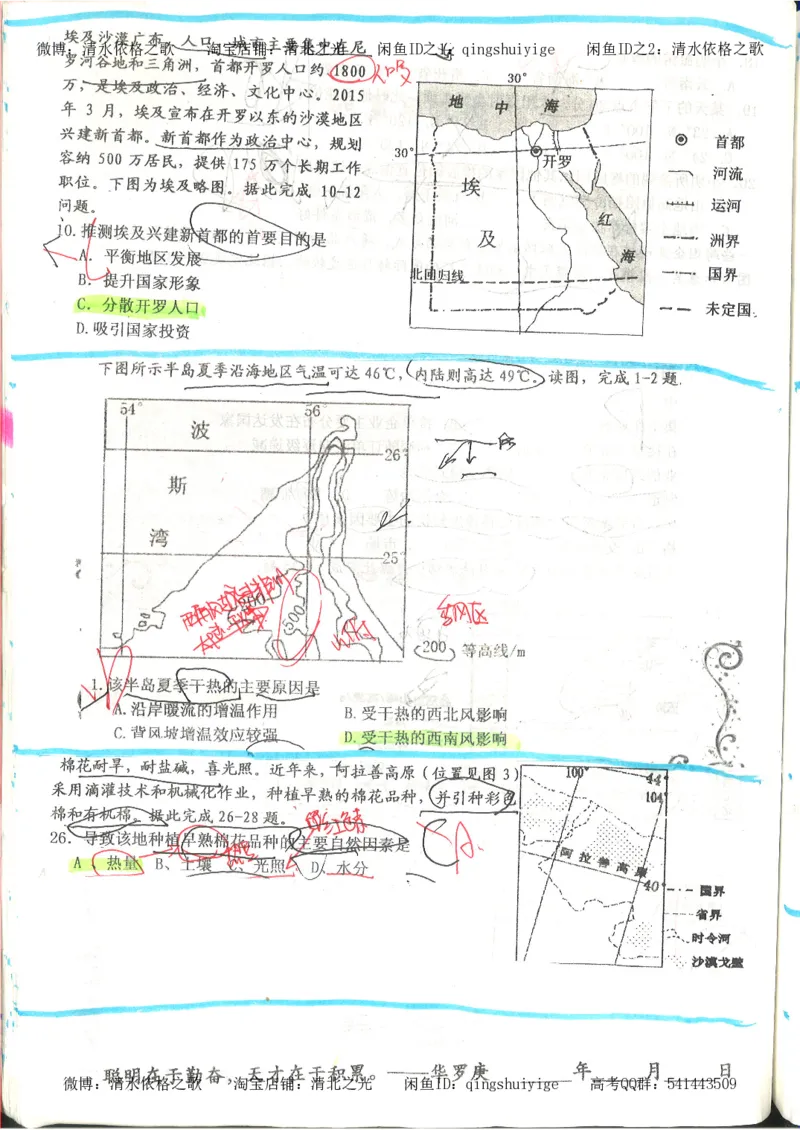 埃及沙漠广布，人口、城市主要集中在尼
微博：清水依格之歌 淘宝店铺：清北之光 闲鱼ID之1：qingshuiyige 闲鱼ID之2：清水依格之歌
罗河谷地和三角洲，首都开罗人口约 1800
万，是埃及政治、经济、文化中心。2015
年 3 月，埃及宣布在开罗以东的沙漠地区
兴建新首都。新首都作为政治中心，规划
容纳 500 万居民，提供 175 万个长期工作
职位。下图为埃及略图。据此完成 10-12
问题。
10.推测埃及兴建新首都的首要目的是
A. 平衡地区发展
B. 提升国家形象
C. 分散开罗人口
D.吸引国家投资
30°
地中海
30°
开罗
埃
及
红
海
北回归线
首都
河流
运河
洲界
国界
未定国
下图所示半岛夏季沿海地区气温可达 46℃，内陆则高达 49℃。读图，完成 1-2 题.
54°
56°
波
斯
湾
26°
25°
500
200 等高线/m
1.该半岛夏季干热的主要原因是
A.沿岸暖流的增温作用
B.受干热的西北风影响
C.背风坡增温效应较强
D.受干热的西南风影响
棉花耐旱，耐盐碱，喜光照。近年来，阿拉善高原（位置见图 3）
采用滴灌技术和机械化作业，种植早熟的棉花品种，并引种彩色
棉和有机棉。据此完成 26-28 题。
26. 导致该地种植早熟棉花品种的主要自然因素是
A、热量 B、土壤 C、光照 D、水分
100°
44
104
阿拉善高原
40°
国界
省界
时令河
沙漠戈壁
聪明在于勤奋，天才在于积累。——华罗庚
年 月 日
微博：清水依格之歌 淘宝店铺：清北之光 闲鱼ID：qingshuiyige 高考QQ群：541443509